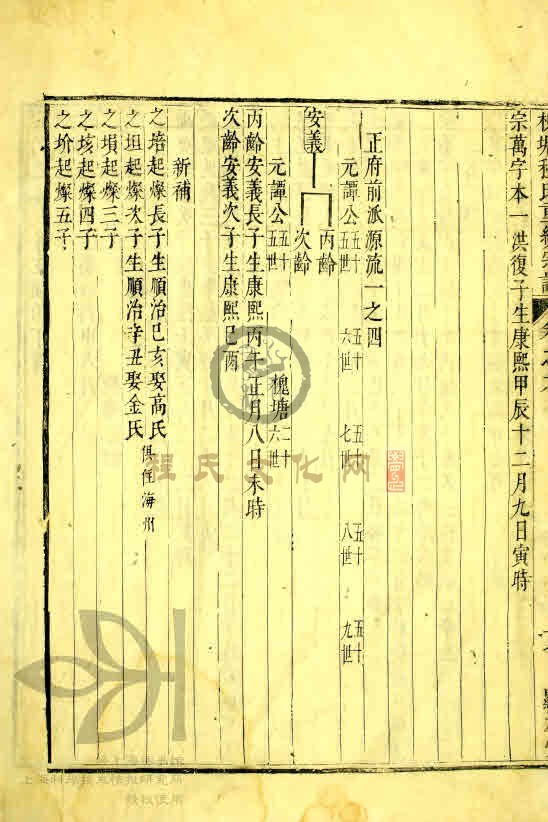 宗萬字本一洪復子生康熙甲辰十二月九日寅時
正府前派源流一之四
元譚公五十五世 五十六世 五十七世 五十八世 五十九世
安義
丙齡
次齡
元譚公五十五世 槐塘二十六世
丙齡安義長子生康熙丙午正月八日未時
次齡安義次子生康熙己酉
新補
之培起燦長子生順治己亥娶高氏
之坦起燦次子生順治辛丑娶金氏 俱住海州
之塤起燦三子
之垓起燦四子
之圿起燦五子
程氏文化网